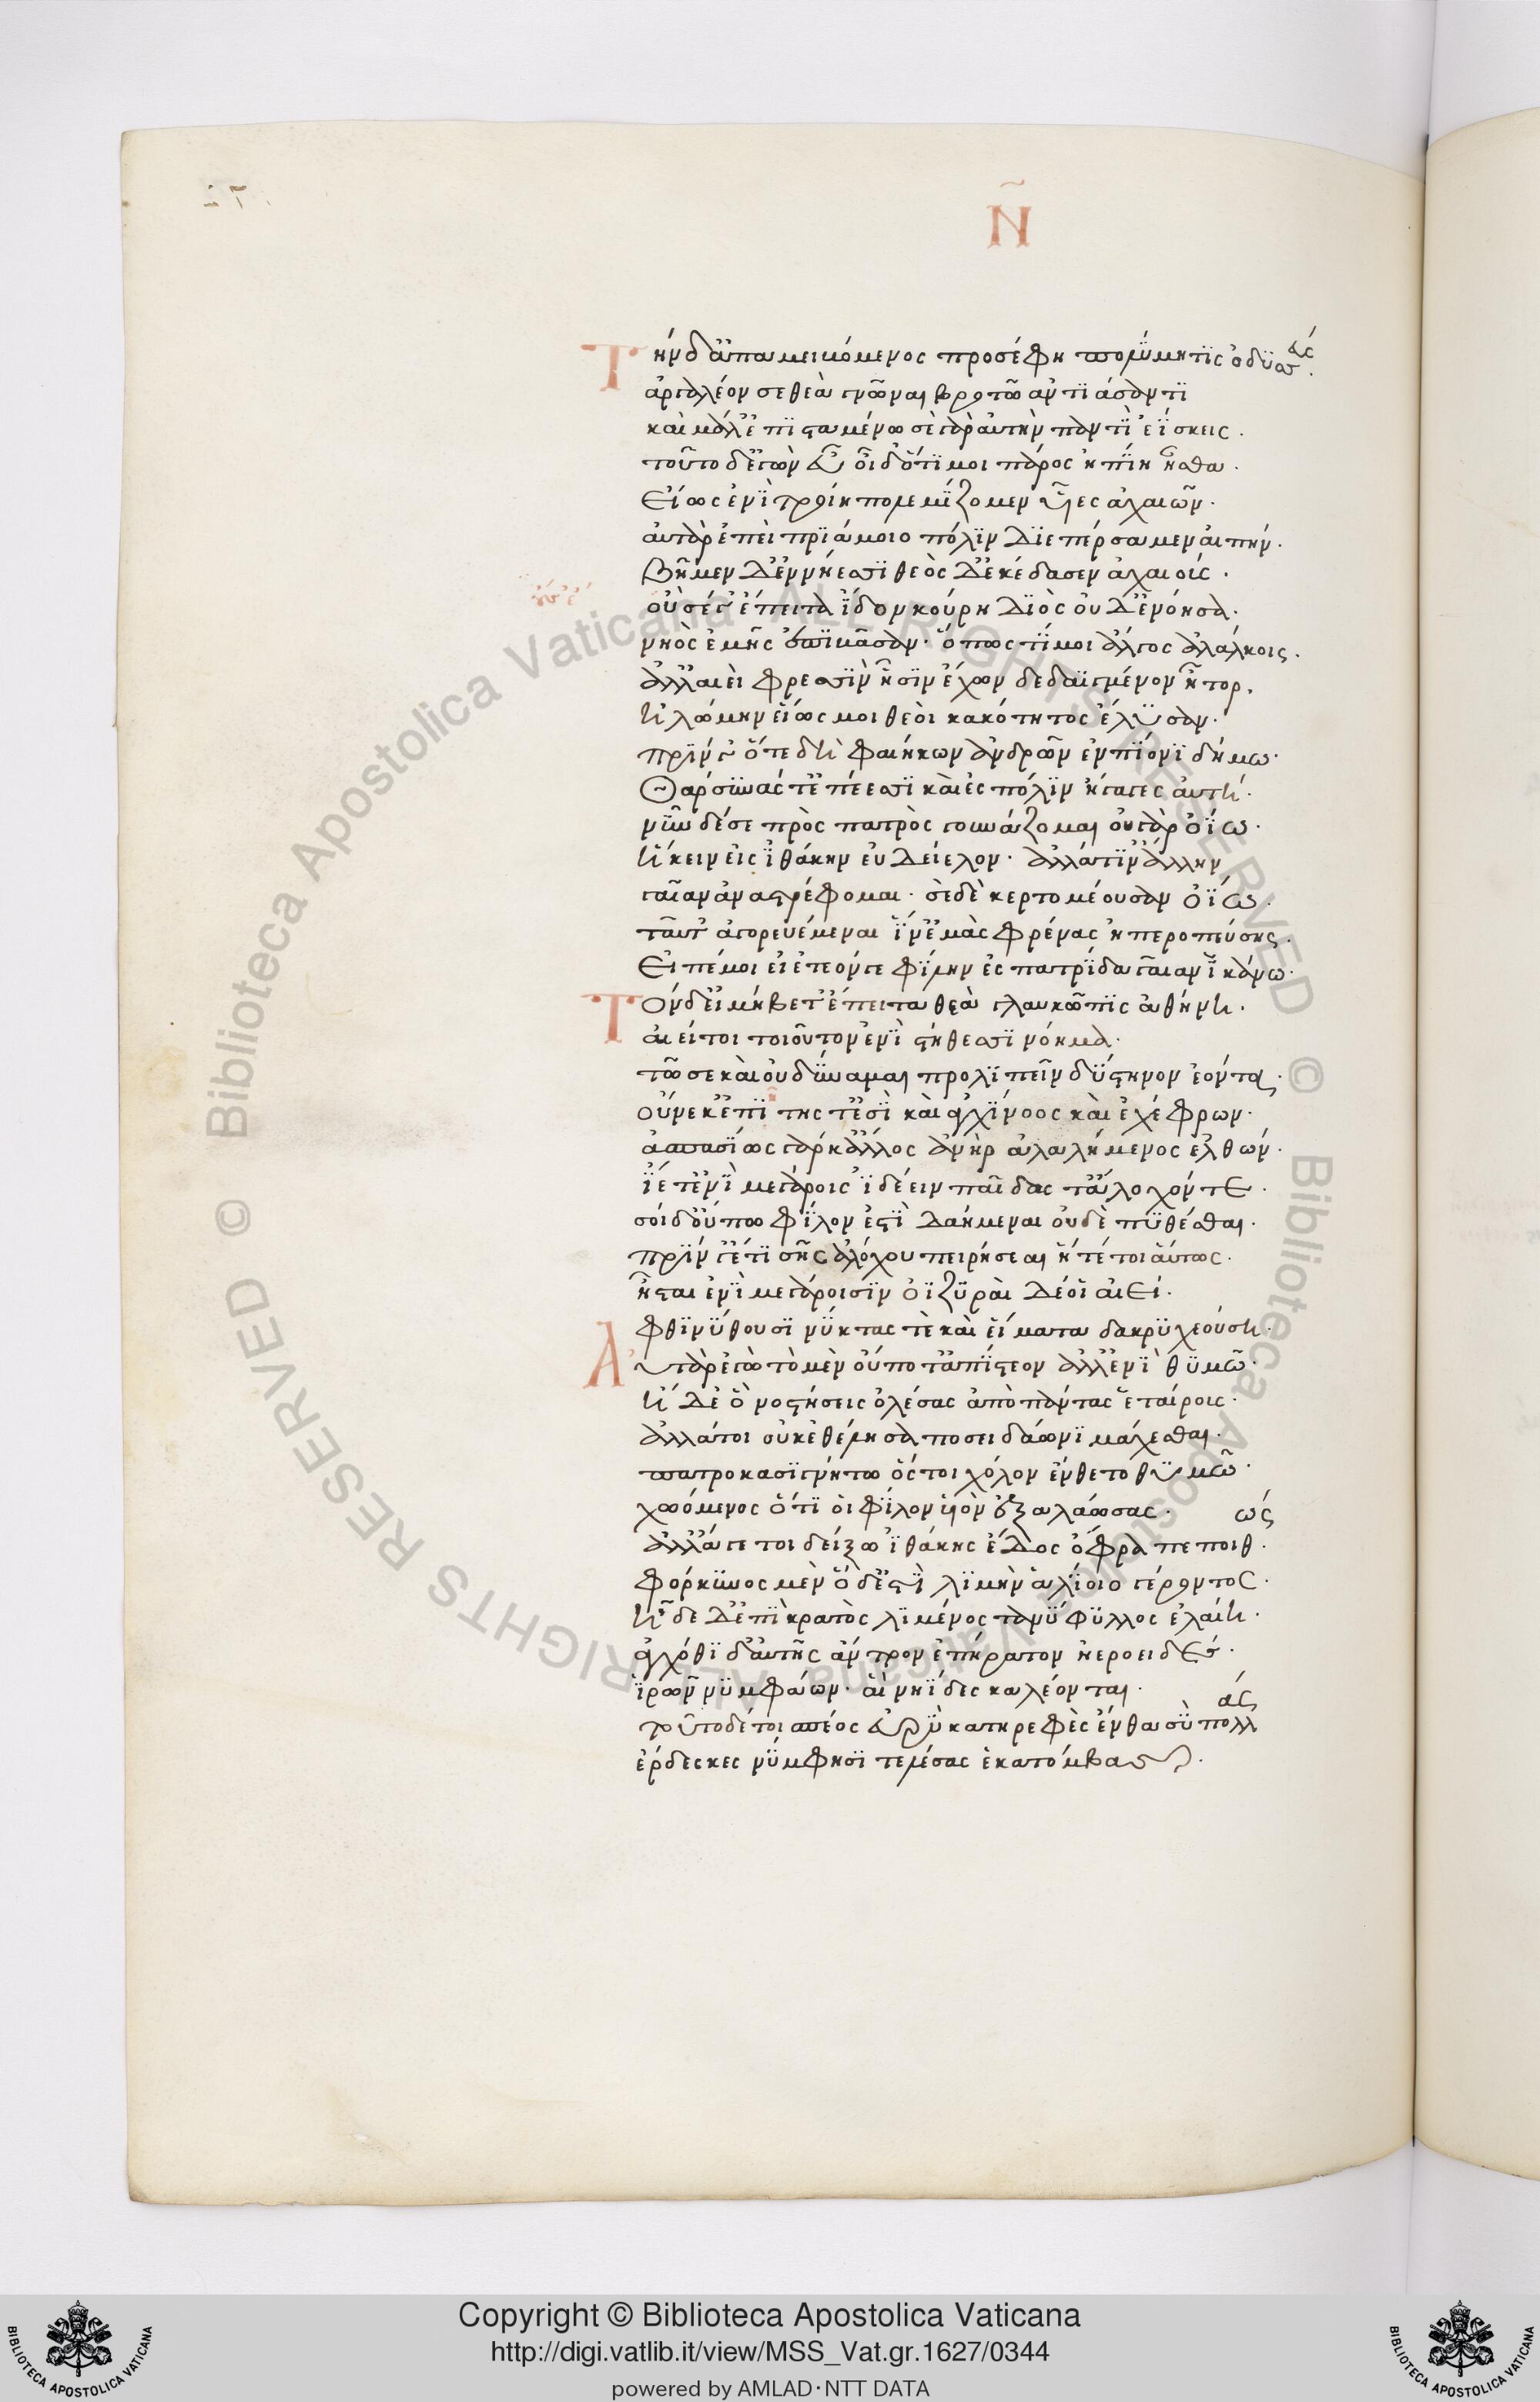 Ν̃
Τὴν δ' ἀπαμειβόμενος προσέφη πολύμητις ὀδυσσεύς.
ἀργαλέον σε θεὰ γνῶναι βροτῶ ἀντιάσαντι
καὶ μάλ' ἐπισταμένω· σὲ γὰρ αὐτὴν παντὶ ἐΐσκεις.
τοῦτο δ' ἐγὼν εὖ οἶδ' ὅτι μοι πάρος ἠπίη ἦσθα.
Εἵως ἐνὶ τροίη πολεμίζομεν υἷες ἀχαιῶν.
αὐτὰρ ἐπεὶ πριάμοιο πόλιν διεπέρσαμεν αἰπήν.
βῆμεν δ' ἐν νήεσσι θεὸς δ' ἐκέδασεν ἀχαιοίς.
οὐ σέγ' ἔπειτα ἴδον κούρη διὸς οὐδ' ἐνόησα.
νηὸς ἐμῆς ἐπιβᾶσαν· ὅπως τί μοι ἄλγος ἀλάλκοις.
ἀλλ' αἰεὶ φρεσὶν ᾗσιν ἔχων δεδαϊγμένον ἦτορ.
ἠλώμην εἵως με θεοὶ κακότητος ἔλυσαν.
πρίν γ' ὅτε δὴ φαιήκων ἀνδρῶν ἐν πίονι δήμω.
Θάρσυνάς τ' ἐπέεσσι καὶ ἐς πόλιν ἤγαγες αὐτή.
νῦν δέ σε πρὸς πατρὸς γουνάζομαι οὐ γὰρ ὀΐω.
ἥκειν εἰς ἰθάκην εὐδείελον· ἀλλά τιν' ἄλλην
γαῖαν ἀναστρέφομαι· σὲ δὲ κερτομέουσαν ὀΐω.
ταῦτ' ἀγορευέμεναι ἵν' ἐμὰς φρένας ἠπεροπεύσης.
Εἰπέ μοι εἰ ἐτεόν γε φίλην ἐς πατρίδα γαῖαν ἱκάνω.
Τὸν δ' ἠμείβετ' ἔπειτα θεὰ γλαυκῶπις ἀθήνη.
αἰεί τοι τοιοῦτον ἐνὶ στήθεσσι νόημα.
τῶ σε καὶ οὐ δύναμαι προλιπεῖν δύστηνον ἐόντα.
οὕνεκ' ἐπιτής τ' ἐσὶ καὶ ἀγχίνοος καὶ ἐχέφρων.
ἀσπασίως γάρ κ' ἄλλος ἀνὴρ ἀλαλήμενος ἐλθών.
ἵετ' ἐνὶ μεγάροις ἰδέειν παῖδας τ' ἄλοχόν τε.
σοὶ δ' οὔπω φίλον ἐστὶ δαήμεναι οὐδὲ πυθέσθαι.
πρίν γ' ἔτι σῆς ἀλόχου πειρήσεαι ἥτέ τοι αὔτως.
ἧσται ἐνὶ μεγάροισιν ὀϊζυραὶ δέ οἱ αἰεί.
φθινύθουσι νύκτας τὲ καὶ ἤματα δακρυχεούση.
Αὐτὰρ ἐγὼ τὸ μὲν οὔποτ' ἀπίστεον ἀλλ' ἐνὶ θυμῶ.
ἤδε' ὃ νοστήσεις ὀλέσας ἀπὸ πάντας ἑταίροις.
ἀλλά τοι οὐκ ἐθέλησα ποσειδάωνι μάχεσθαι.
πατροκασιγνήτω ὅς τοι χόλον ἔνθετο θυμῶ.
χωόμενος ὅτι οἱ φίλον υἱὸν ἐξαλάωσας.
ἀλλ' ἄγε τοι δείξω ἰθάκης ἕδος ὄφρα πεποιθώς.
φόρκυνος μὲν ὅδ' ἐστὶ λιμὴν ἁλίοιο γέροντος.
ἥδε δ' ἐπὶ κρατὸς λιμένος τανύφυλλος ἐλαίη.
ἀγχόθι δ' αὐτῆς ἄντρον ἐπήρατον ἠεροειδές.
ἱρὸν νυμφάων· αἳ νηΐδες καλέονται.
τοῦτο δέ τοι σπέος εὐρὺ κατηρεφὲς ἔνθα σὺ πολλάς
ἔρδεσκες νύμφησι τελέσας ἑκατόμβας.
Copyright © Biblioteca Apostolica Vaticana
http://digi.vatlib.it/view/MSS_Vat.gr.1627/0344
powered by AMLAD·NTT DATA